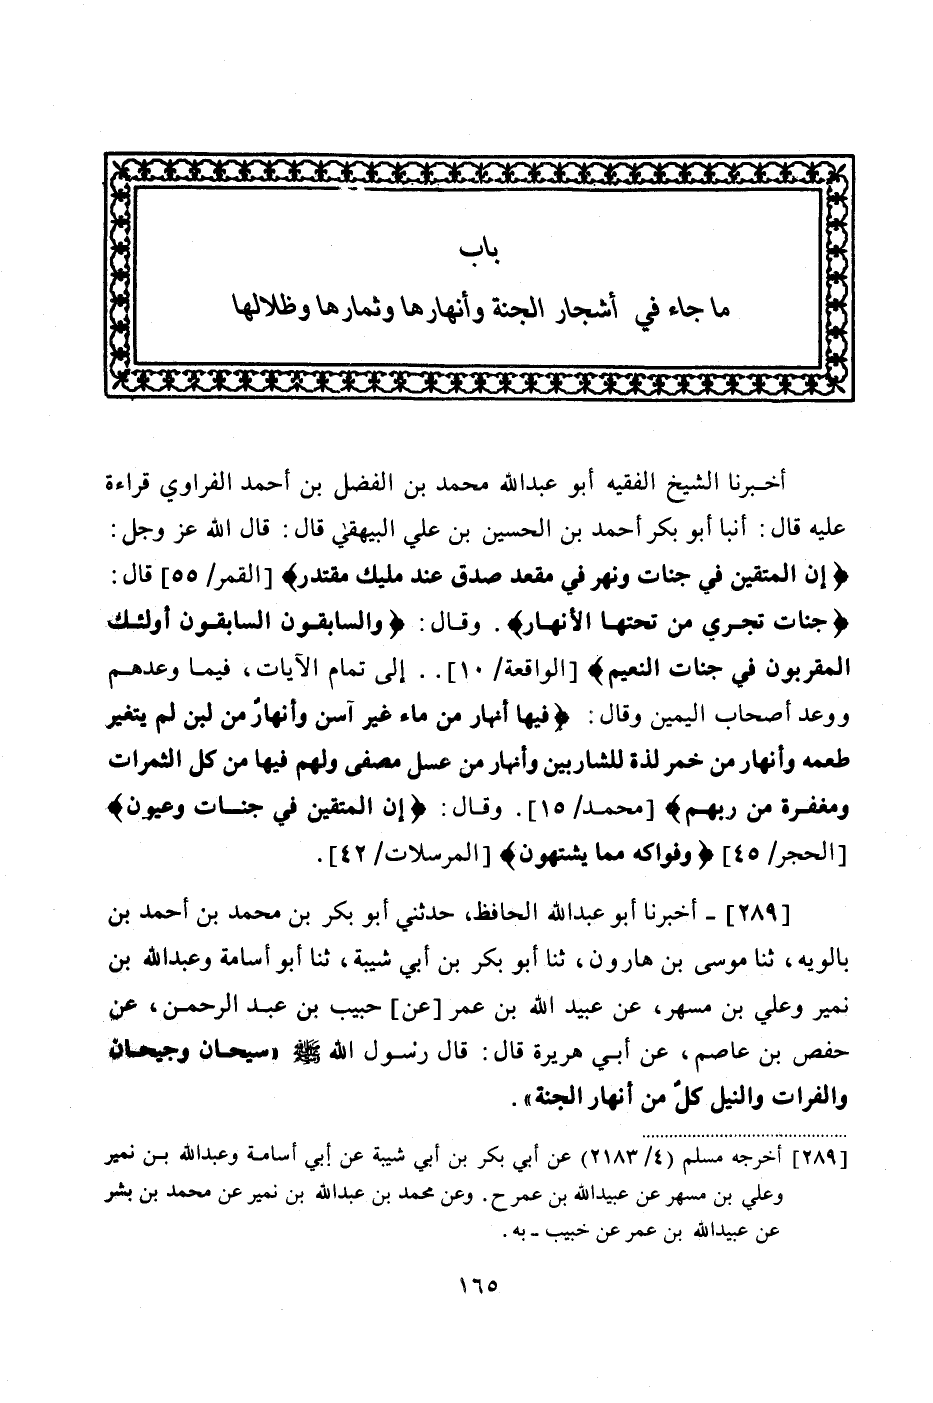 باب
ما جاء في أشجار الجنة وأنهارها وثمارها وظلالها
أخبرنا الشيخ الفقيه أبو عبدالله محمد بن الفضل بن أحمد الفراوي قراءة
عليه قال: أنبا أبو بكر أحمد بن الحسين بن علي البيهقي قال: قال الله عز وجل:
﴿إن المتقين في جنات ونهر في مقعد صدق عند مليك مقتدر﴾ [القمر/ ٥٥] قال:
﴿جنات تجري من تحتها الأنهار﴾. وقال: ﴿والسابقون السابقون أولئك
المقربون في جنات النعيم﴾ [الواقعة/ ١٠].. إلى تمام الآيات، فيما وعدهم
ووعد أصحاب اليمين وقال: ﴿فيها أنهار من ماء غير آسن وأنهارٌ من لبن لم يتغير
طعمه وأنهار من خمر لذة للشاربين وأنهار من عسل مصفى ولهم فيها من كل الثمرات
ومغفرة من ربهم﴾ [محمد/ ١٥]. وقال: ﴿إن المتقين في جنات وعيون﴾
[الحجر/ ٤٥] ﴿وفواكه مما يشتهون﴾ [المرسلات/ ٤٢].
[٢٨٩] ـ أخبرنا أبو عبدالله الحافظ، حدثني أبو بكر بن محمد بن أحمد بن
بالويه، ثنا موسى بن هارون، ثنا أبو بكر بن أبي شيبة، ثنا أبو أسامة وعبدالله بن
نمير وعلي بن مسهر، عن عبيد الله بن عمر [عن] حبيب بن عبد الرحمن، عن
حفص بن عاصم، عن أبي هريرة قال: قال رسول الله ﷺ «سيحان وجيحان
والفرات والنيل كلٌ من أنهار الجنة».
[٢٨٩] أخرجه مسلم (٤/ ٢١٨٣) عن أبي بكر بن أبي شيبة عن إبي أسامة وعبدالله بن نمير
وعلي بن مسهر عن عبيدالله بن عمر ح. وعن محمد بن عبدالله بن نمير عن محمد بن بشر
عن عبيدالله بن عمر عن خبيب ـ به.
١٦٥